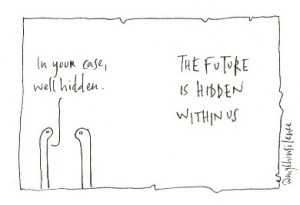 In your case,
well hidden.
THE FUTURE
IS HIDDEN
WITHIN US